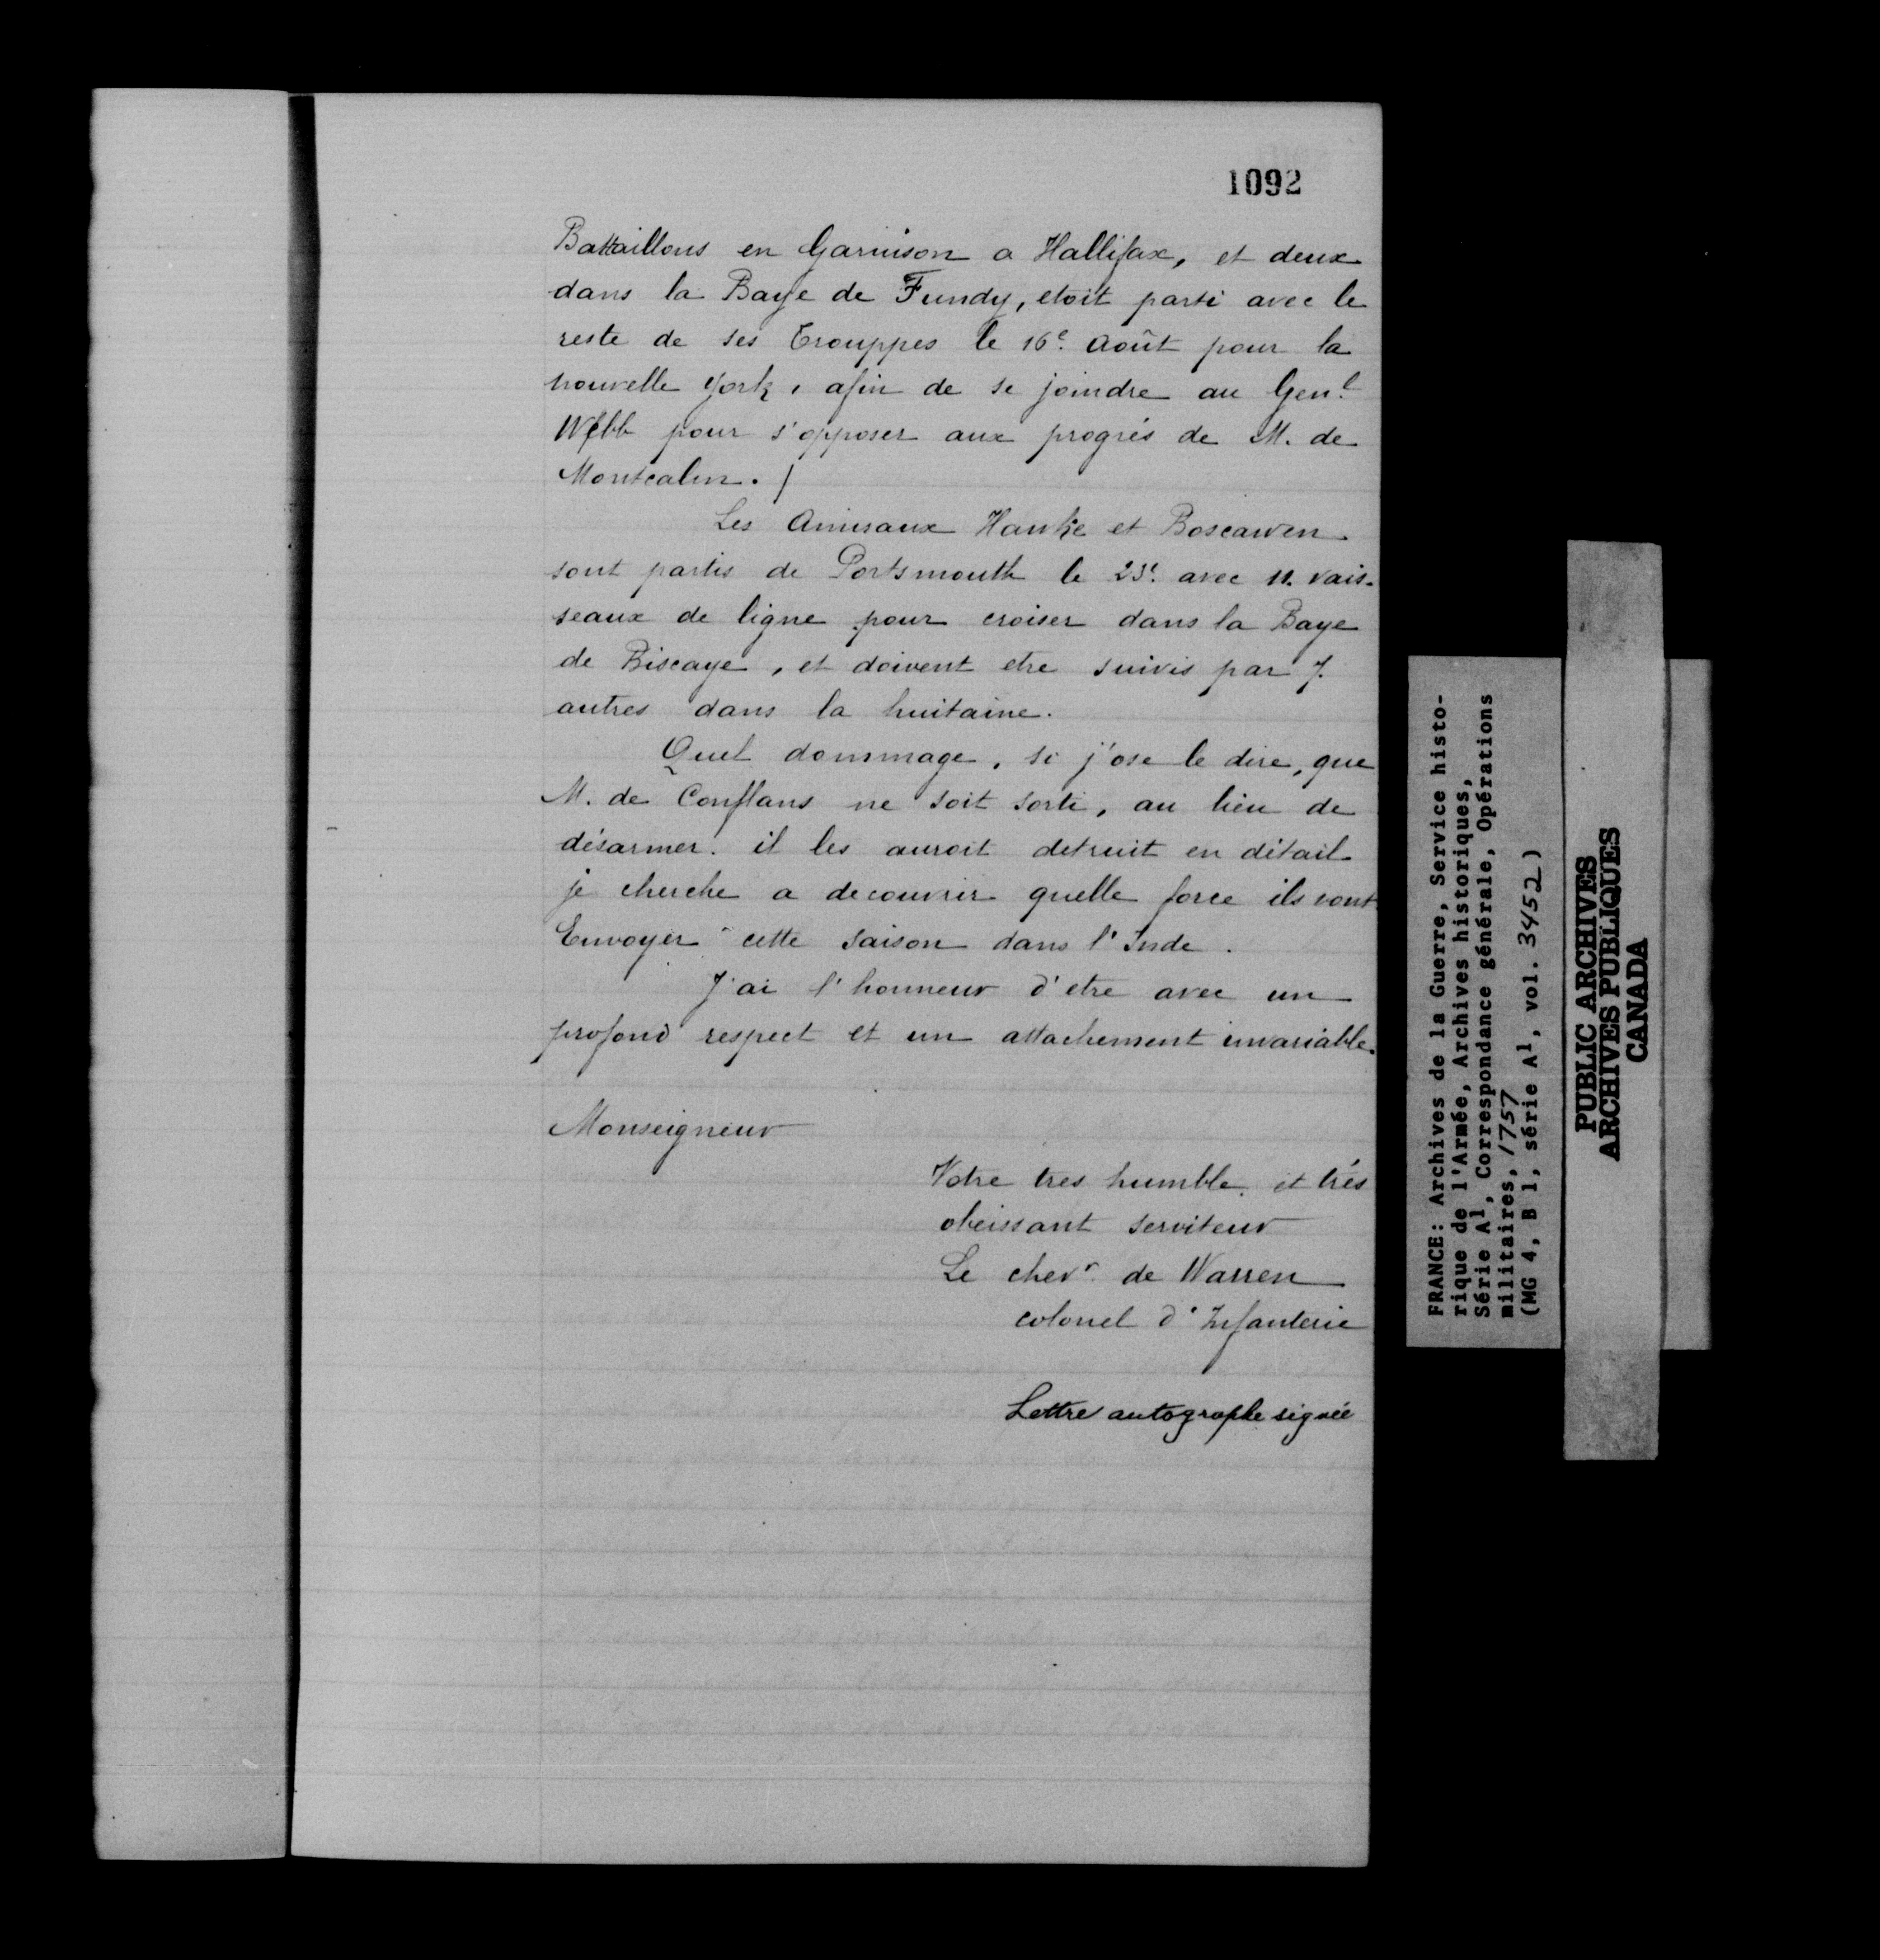 1092
Battaillons en Garnison a Hallifax, et deux
dans la Baye de Fundy, etoit parti avec le
reste de ses Trouppes le 16e. Août pour la
nouvelle york, afin de se joindre au Genl.
Webb pour s'opposer aux progrés de M. de
Montcalm. /
Les Amiraux Hawke et Boscawen
sont partis de Portsmouth le 23e. avec 11. vais-
seaux de ligne pour croiser dans la Baye
de Biscaye, et doivent etre suivis par 7.
autres dans la huitaine.
Quel dommage, si j'ose le dire, que
M. de Conflans ne soit sorti, au lieu de
désarmer. il les auroit detruit en détail
je cherche a decouvrir quelle force ils vont
Envoyer cette saison dans l'Inde.
J'ai l'honneur d'etre avec un
profond respect et un attachement invariable.
Monseigneur
Votre tres humble et trés
obeissant serviteur
Le chevr de Warren
colonel d'Infanterie
Lettre autographe signée
FRANCE: Archives de la Guerre, Service histo-
rique de l'Armée, Archives historiques,
Série A1, Correspondance générale, Opérations
militaires, 1757
(MG 4, B 1, série A1, vol. 3452)
PUBLIC ARCHIVES
ARCHIVES PUBLIQUES
CANADA